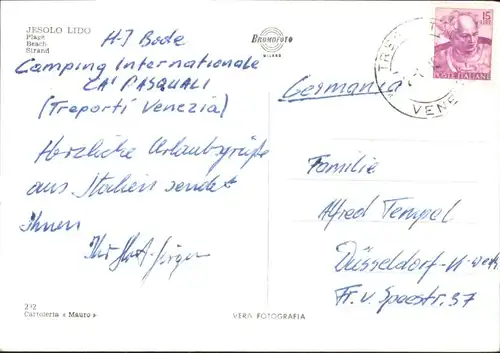 JESOLO LIDO
Plage
Beach
Strand
H-J Bode
Camping Internationale
CA' PASQUALI
(Treporti Venezia)
Herzliche Urlaubsgrüße
aus Italien sendet
Ihnen
Ihr Horst-Jürgen
BROMOFOTO
MILANO
15
LIRE
POSTE ITALIANE
VENE
Germania
Familie
Alfred Tempel
Düsseldorf-
Fr. v. Speestr. 37
272
Cartoleria « Mauro »
VERA FOTOGRAFIA